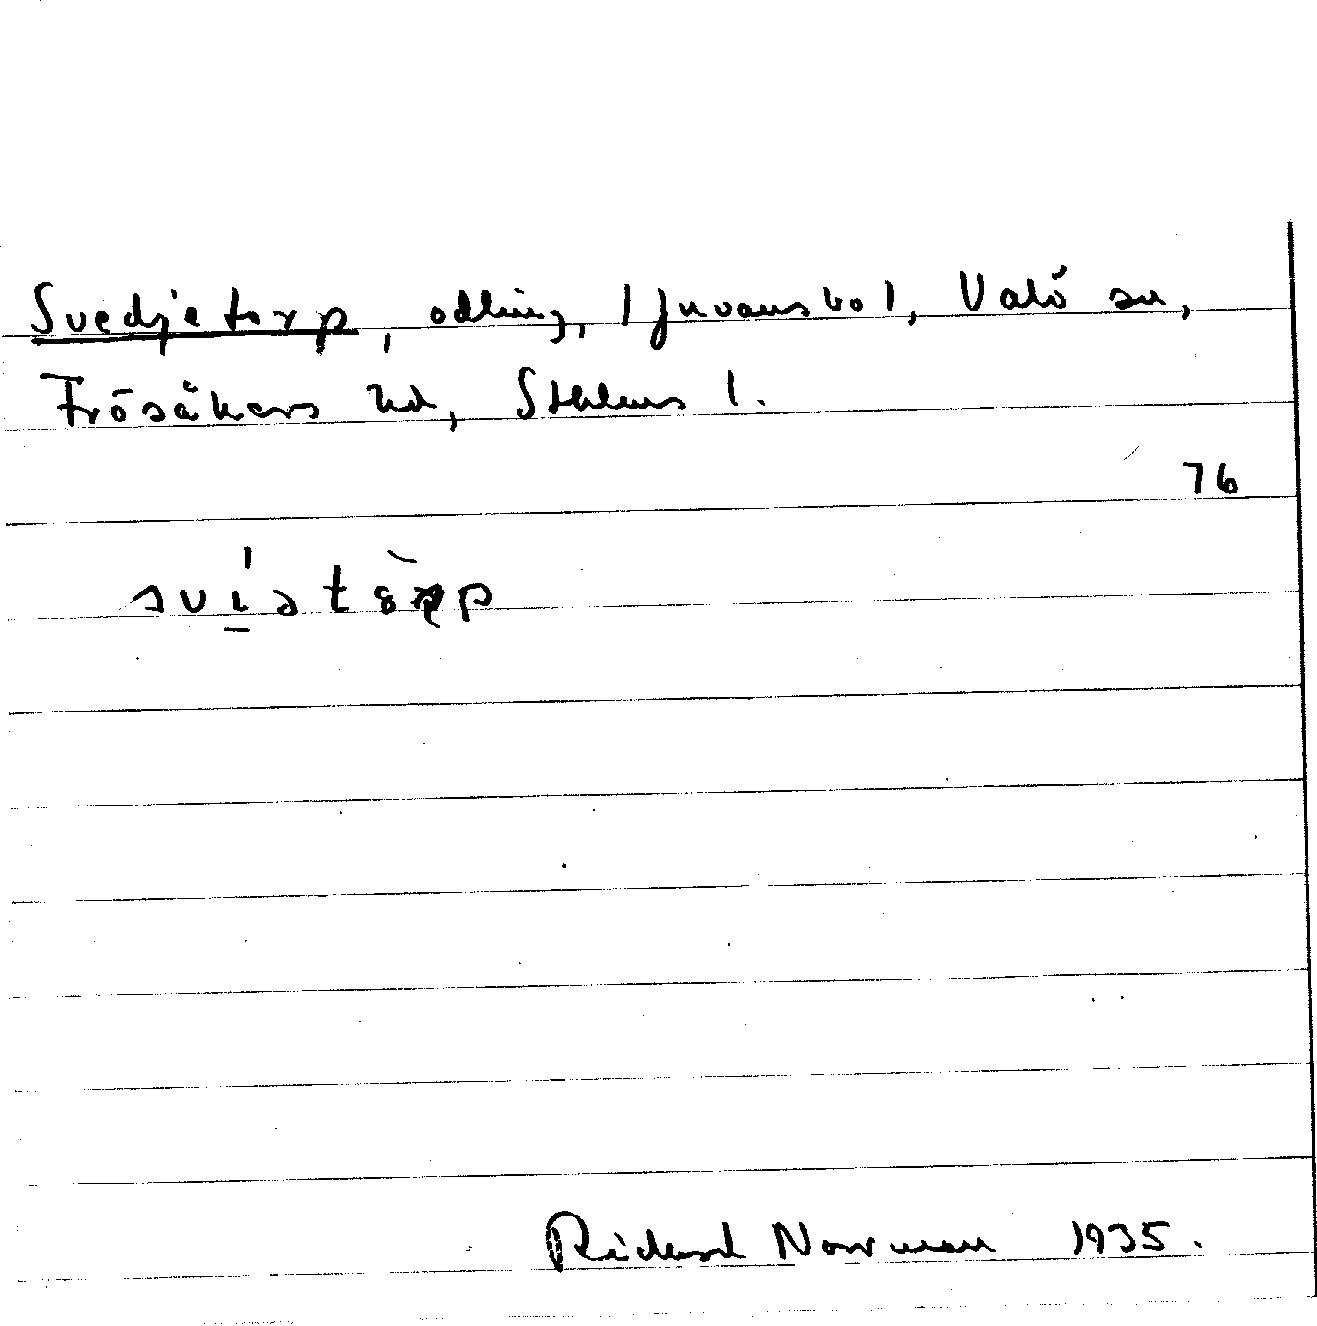 Svedjetorp, odling, Ljuvansbol, Valö sn,
Frösåkers hd, Sthlms l.
76
Rickard Norrman 1935.